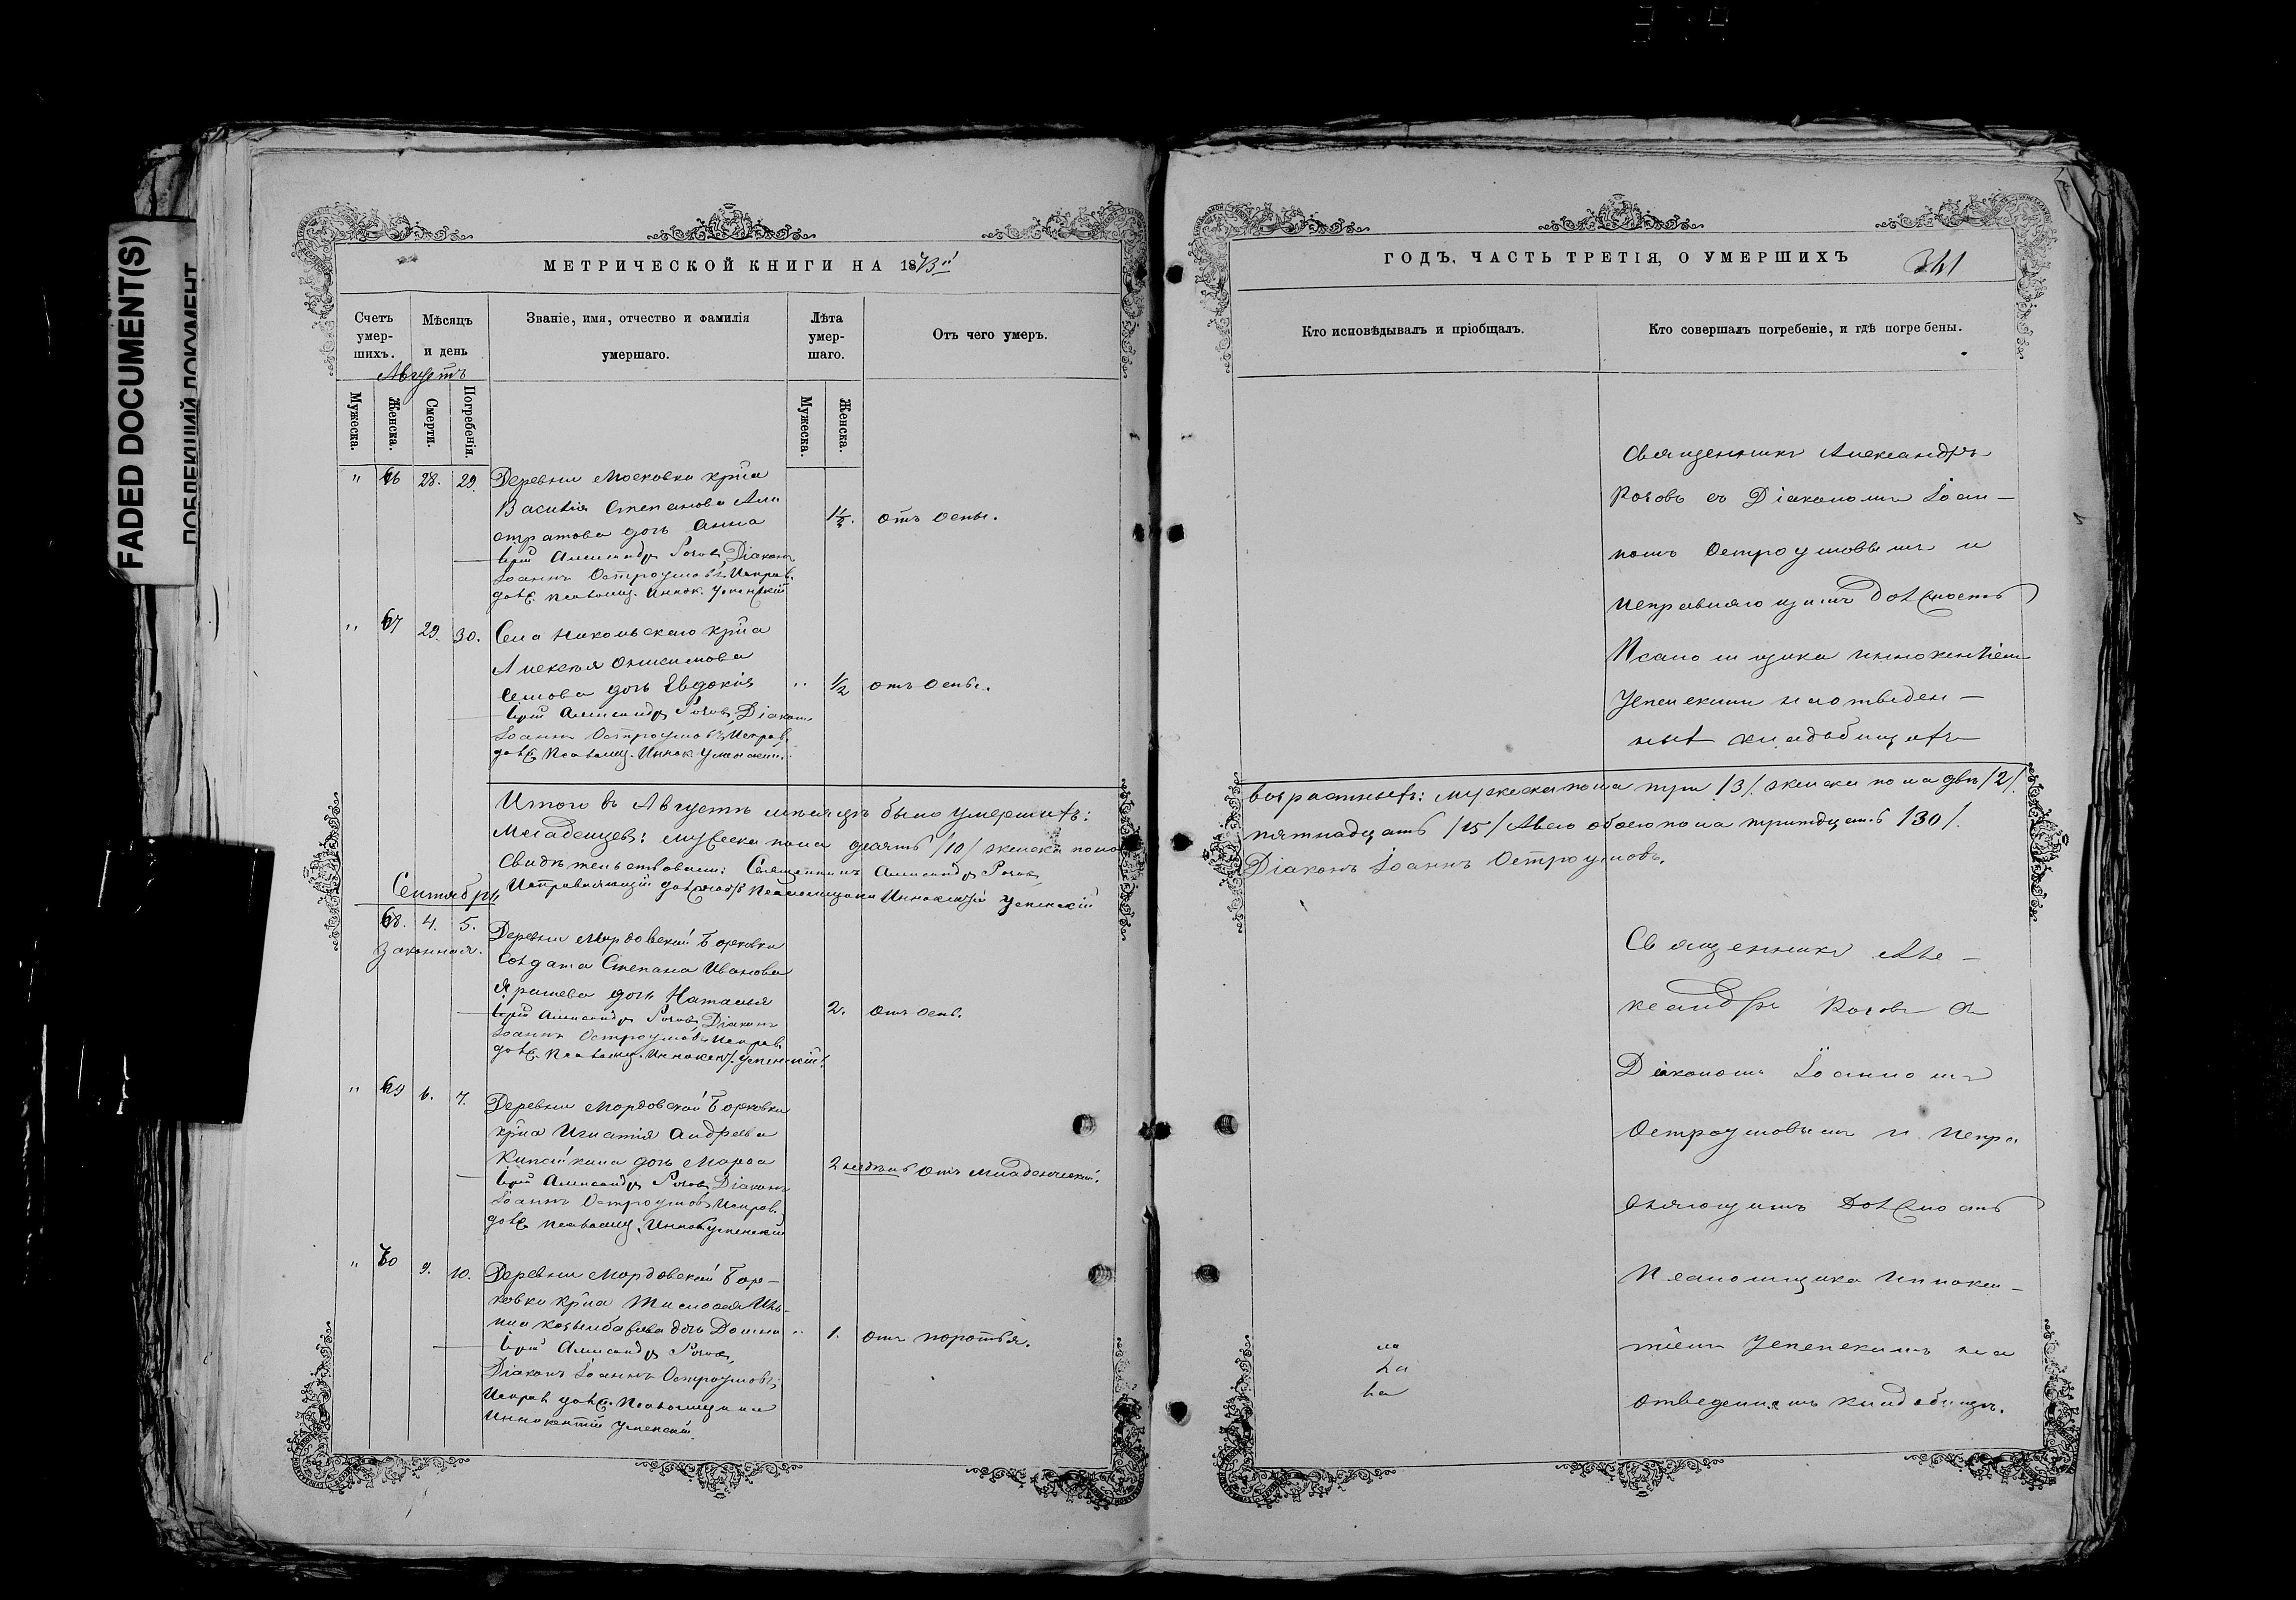 FADED DOCUMENT(S)
ПОБЛЕКШИЙ ДОКУМЕНТ
МЕТРИЧЕСКОЙ КНИГИ НА 1873й
Счетъ умер-шихъ.
Мѣсяцъ и день
Августъ
Званіе, имя, отчество и фамилія умершаго.
Лѣта умер-шаго.
Отъ чего умеръ.
Мужеска.
Женска.
Смерти.
Погребенія.
Мужеска.
Женска.
" 66 28. 29. Деревни Московки крна
Василія Степанова
дочь Анна
1½. отъ оспы.
Іерей Александръ Роговъ, Діаконъ
Іоаннъ Остроумовъ, Исправ.
долж. Псаломщ. Иннок. Успенскій
" 67 29. 30. Села Никольскаго крна
Алексѣя Онисимова
дочь Евдокія " 1/2 отъ оспы.
Іерей Александръ Роговъ, Діаконъ
Іоаннъ Остроумовъ, Исправ.
долж. Псаломщ. Иннок. Успенскій.
Итого въ Августѣ мѣсяцѣ было умершихъ:
Младенцевъ: мужеска пола десять /10/ женска пола
Свидѣтельствовали: Священникъ Александръ Роговъ,
Исправляющій должность Псаломщика Иннокентій Успенскій
Сентябрь
68. 4. 5. Деревни Мордовской Борковки
законная.
Солдата Степана Иванова
дочь Наталья
2. отъ оспы.
Іерей Александръ Роговъ, Діаконъ
Іоаннъ Остроумовъ, Исправ.
долж. Псаломщ. Иннокент. Успенскій.
" 69 6. 7. Деревни Мордовской Борковки
крна Игнатія Андреева
дочь Марѳа
2 недѣль отъ младенческой.
Іерей Александръ Роговъ, Діаконъ
Іоаннъ Остроумовъ, Исправ.
долж. Псаломщ. Иннок. Успенскій
" 70 9. 10. Деревни Мордовской Бор-
ковки крна Тимоѳея
дочь Домна " 1. отъ
Іерей Александръ Роговъ,
Діаконъ Іоаннъ Остроумовъ,
Исправ. долж. Псаломщика
Иннокентій Успенскій.
ГОДЪ, ЧАСТЬ ТРЕТІЯ, О УМЕРШИХЪ
341
Кто исповѣдывалъ и пріобщалъ.
Кто совершалъ погребеніе, и гдѣ погребены.
Священникъ Александръ
Роговъ съ Діакономъ Іоан-
номъ Остроумовымъ и
исправляющимъ должность
Псаломщика Иннокентіемъ
Успенскимъ на отведен-
ныхъ кладбищахъ
возрастныхъ: мужеска пола три /3/. женска пола двѣ /2/.
пятнадцать /15/ Всего обоего пола тридцать /30/.
Діаконъ Іоаннъ Остроумовъ.
Священникъ Але-
ксандръ Роговъ съ
Діакономъ Іоанномъ
Остроумовымъ и испра
вляющимъ должность
Псаломщика Иннокен-
тіемъ Успенскимъ на
отведенномъ кладбищѣ.